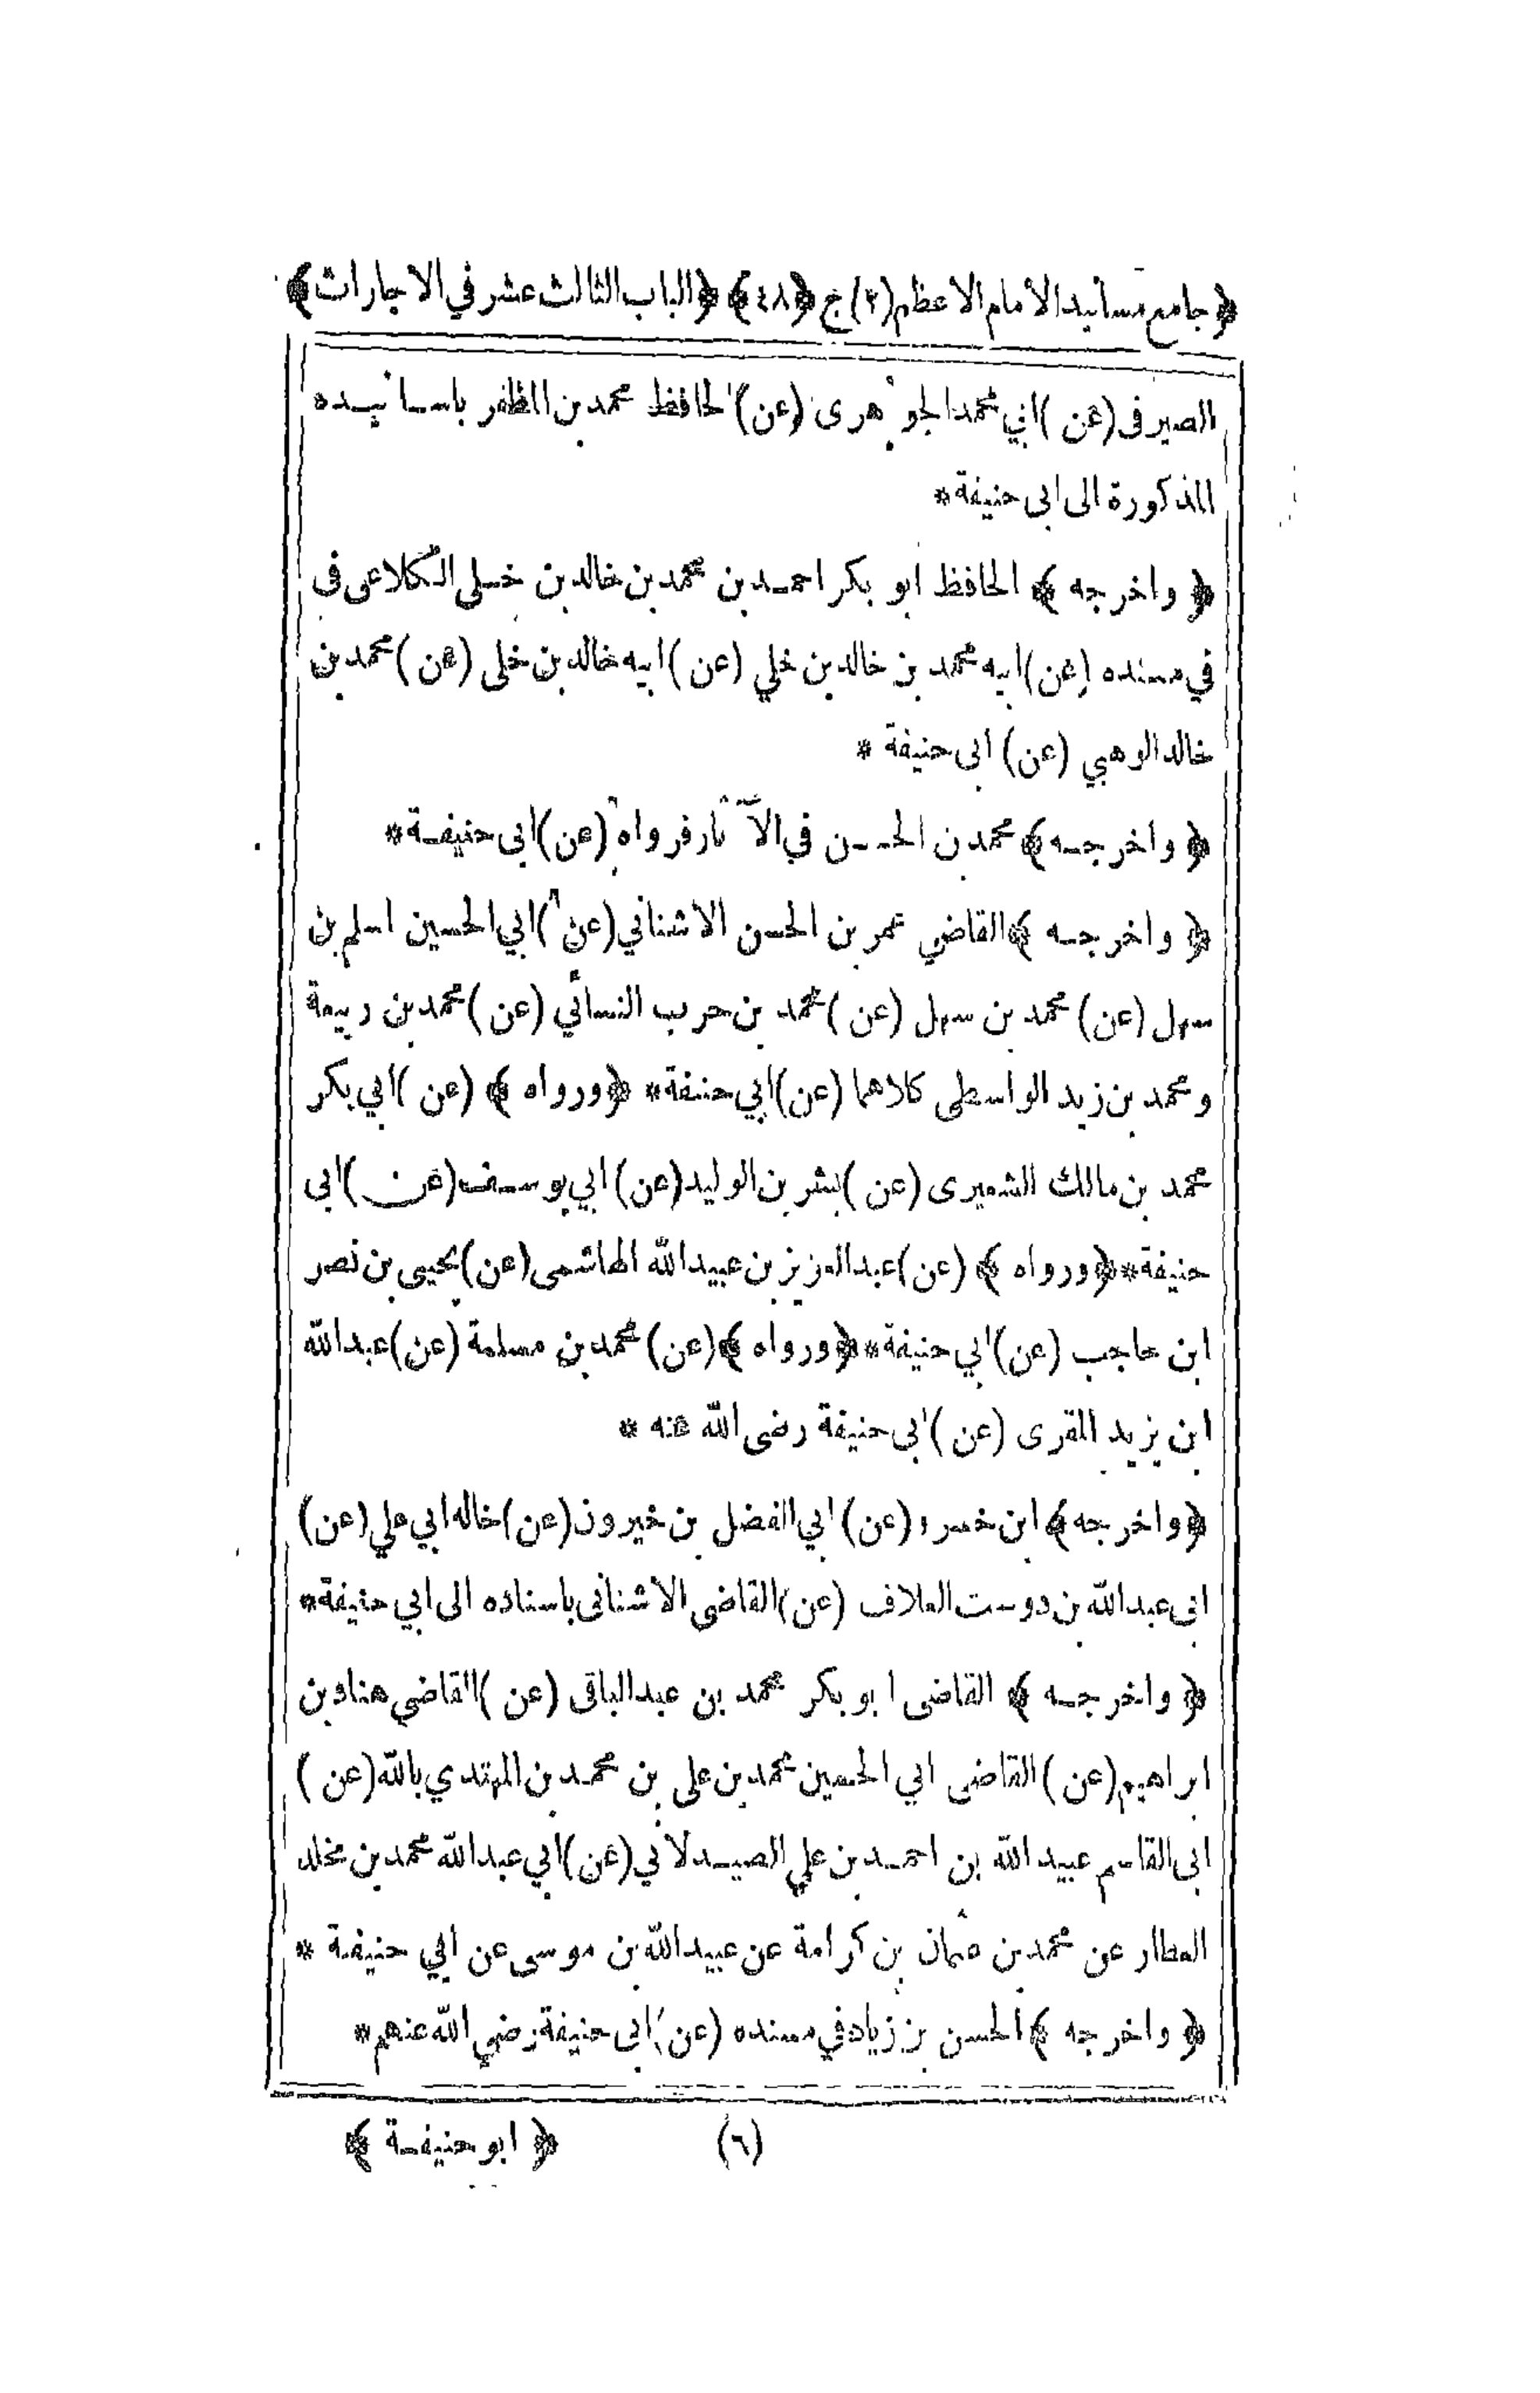 ﴿ جامع مسانيد الامام الاعظم (٢) ج ﴿٤٨﴾ ﴿ الباب الثالث عشر في الاجارات ﴾
الصيرفى (عن) ابي محمد الجوهرى (عن) الحافظ محمد بن المظفر باسانيده
المذكورة الى ابى حنيفة *
﴿ واخرجه ﴾ الحافظ ابو بكر احمد بن محمد بن خالد بن خلى الكلاعى فى
في مسنده (عن) ابيه محمد بن خالد بن خلي (عن) ابيه خالد بن خلى (عن) محمد بن
خالد الوهبي (عن) ابى حنيفة *
﴿ واخرجه ﴾ محمد بن الحسن في الآثار فرواه (عن) ابى حنيفة *
﴿ واخرجه ﴾ القاضي عمر بن الحسن الاشناني (عن) ابي الحسين اسلم بن
سهل (عن) محمد بن سهل (عن) محمد بن حرب النسائي (عن) محمد بن ربيعة
ومحمد بن زيد الواسطى كلاهما (عن) ابي حنيفة * ﴿ ورواه ﴾ (عن) ابي بكر
محمد بن مالك الشعيرى (عن) بشر بن الوليد (عن) ابي يوسف (عن) ابى
حنيفة * ﴿ ورواه ﴾ (عن) عبد العزيز بن عبيد الله الهاشمى (عن) يحيى بن نصر
ابن حاجب (عن) ابي حنيفة * ﴿ ورواه ﴾ (عن) محمد بن مسلمة (عن) عبد الله
ابن يزيد المقرى (عن) ابى حنيفة رضى الله عنه *
﴿ واخرجه ﴾ ابن خسرو (عن) ابي الفضل بن خيرون (عن) خاله ابي علي (عن)
ابى عبد الله بن دوست العلاف (عن) القاضى الاشنانى باسناده الى ابي حنيفة *
﴿ واخرجه ﴾ القاضى ابو بكر محمد بن عبد الباقى (عن) القاضي هناد بن
ابراهيم (عن) القاضى ابي الحسين محمد بن على بن محمد بن المهتدي بالله (عن)
ابى القاسم عبيد الله بن احمد بن علي الصيدلاني (عن) ابي عبد الله محمد بن مخلد
العطار عن محمد بن عثمان بن كرامة عن عبيد الله بن موسى عن ابي حنيفة *
﴿ واخرجه ﴾ الحسن بن زياد في مسنده (عن) ابى حنيفة رضي الله عنهم *
(٦) ﴿ ابو حنيفة ﴾